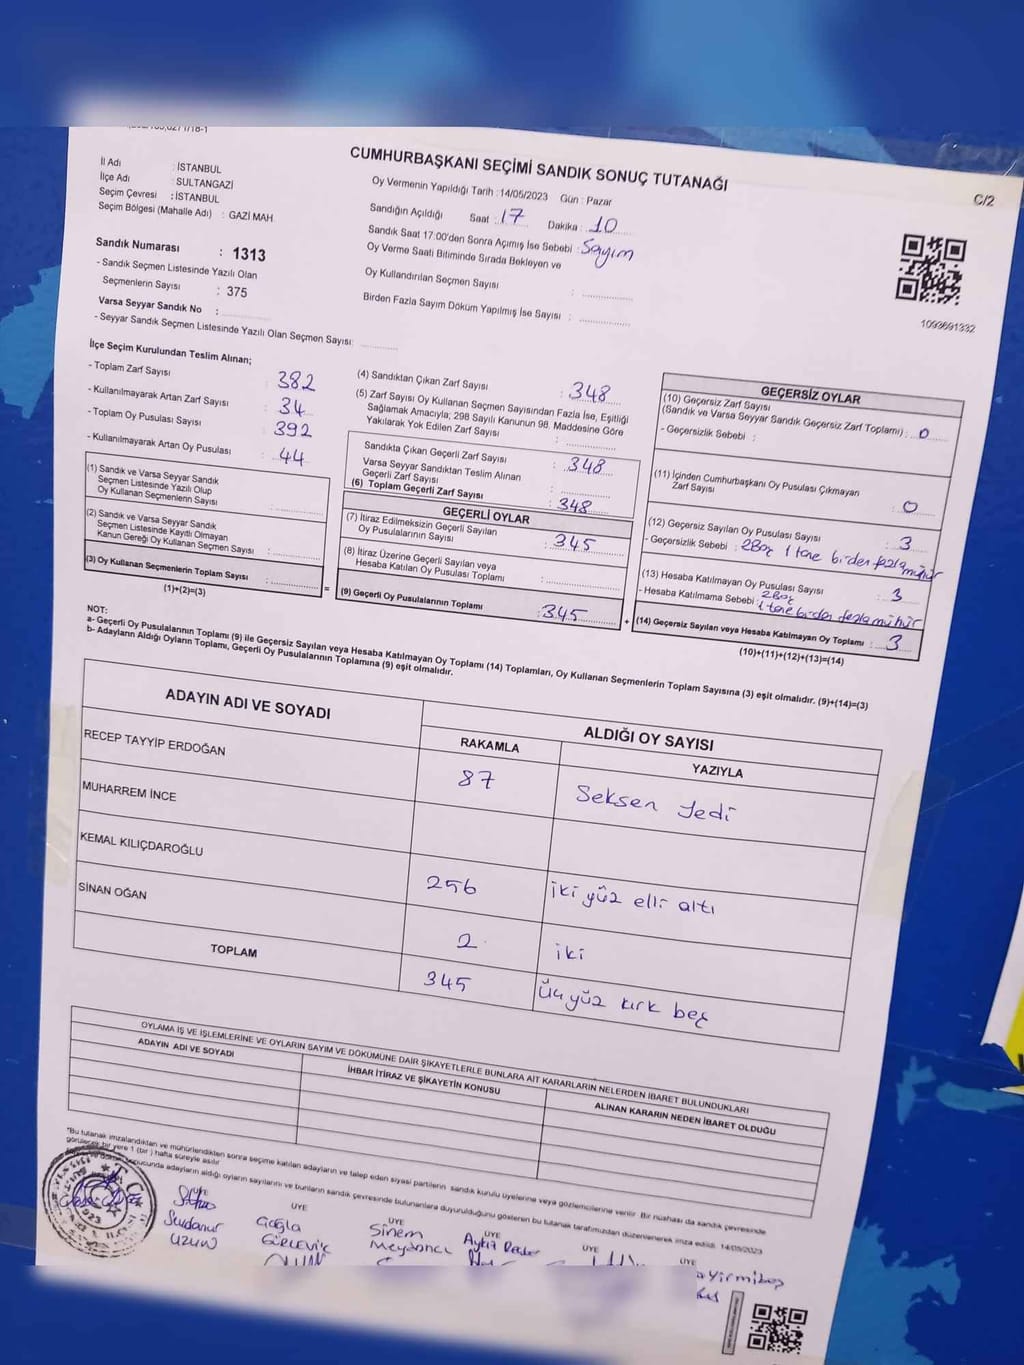 CUMHURBAŞKANI SEÇİMİ SANDIK SONUÇ TUTANAĞI
C/2
İl Adı : İSTANBUL
İlçe Adı : SULTANGAZİ
Seçim Çevresi : İSTANBUL
Seçim Bölgesi (Mahalle Adı) : GAZİ MAH.
Oy Vermenin Yapıldığı Tarih : 14/05/2023 Gün : Pazar
Sandığın Açıldığı Saat : 17 Dakika : 10
Sandık Saat 17:00'den Sonra Açılmış İse Sebebi : Sayım
Oy Verme Saati Bitiminde Sırada Bekleyen ve
Oy Kullandırılan Seçmen Sayısı :
Birden Fazla Sayım Döküm Yapılmış İse Sayısı :
Sandık Numarası : 1313
- Sandık Seçmen Listesinde Yazılı Olan
Seçmenlerin Sayısı : 375
Varsa Seyyar Sandık No :
- Seyyar Sandık Seçmen Listesinde Yazılı Olan Seçmen Sayısı:
1093691332
İlçe Seçim Kurulundan Teslim Alınan;
- Toplam Zarf Sayısı : 382
- Kullanılmayarak Artan Zarf Sayısı : 34
- Toplam Oy Pusulası Sayısı : 392
- Kullanılmayarak Artan Oy Pusulası : 44
(1) Sandık ve Varsa Seyyar Sandık
Seçmen Listesinde Yazılı Olup
Oy Kullanan Seçmenlerin Sayısı :
(2) Sandık ve Varsa Seyyar Sandık
Seçmen Listesinde Kayıtlı Olmayan
Kanun Gereği Oy Kullanan Seçmen Sayısı :
(3) Oy Kullanan Seçmenlerin Toplam Sayısı :
(1)+(2)=(3)
(4) Sandıktan Çıkan Zarf Sayısı : 348
(5) Zarf Sayısı Oy Kullanan Seçmen Sayısından Fazla İse, Eşitliği
Sağlamak Amacıyla; 298 Sayılı Kanunun 98. Maddesine Göre
Yakılarak Yok Edilen Zarf Sayısı :
Sandıkta Çıkan Geçerli Zarf Sayısı : 348
Varsa Seyyar Sandıktan Teslim Alınan
Geçerli Zarf Sayısı :
(6) Toplam Geçerli Zarf Sayısı : 348
GEÇERLİ OYLAR
(7) İtiraz Edilmeksizin Geçerli Sayılan
Oy Pusulalarının Sayısı : 345
(8) İtiraz Üzerine Geçerli Sayılan veya
Hesaba Katılan Oy Pusulası Toplamı :
= (9) Geçerli Oy Pusulalarının Toplamı : 345 +
GEÇERSİZ OYLAR
(10) Geçersiz Zarf Sayısı
(Sandık ve Varsa Seyyar Sandık Geçersiz Zarf Toplamı) : 0
- Geçersizlik Sebebi :
(11) İçinden Cumhurbaşkanı Oy Pusulası Çıkmayan
Zarf Sayısı : 0
(12) Geçersiz Sayılan Oy Pusulası Sayısı : 3
- Geçersizlik Sebebi : 2Boş 1 tane birden fazla mühür
(13) Hesaba Katılmayan Oy Pusulası Sayısı : 3
- Hesaba Katılmama Sebebi : 2Boş
1 tane birden fazla mühür
(14) Geçersiz Sayılan veya Hesaba Katılmayan Oy Toplamı : 3
(10)+(11)+(12)+(13)=(14)
NOT:
a- Geçerli Oy Pusulalarının Toplamı (9) ile Geçersiz Sayılan veya Hesaba Katılmayan Oy Toplamı (14) Toplamları, Oy Kullanan Seçmenlerin Toplam Sayısına (3) eşit olmalıdır. (9)+(14)=(3)
b- Adayların Aldığı Oyların Toplamı, Geçerli Oy Pusulalarının Toplamına (9) eşit olmalıdır.
ADAYIN ADI VE SOYADI
ALDIĞI OY SAYISI
RAKAMLA YAZIYLA
RECEP TAYYİP ERDOĞAN 87 Seksen Yedi
MUHARREM İNCE
KEMAL KILIÇDAROĞLU 256 iki yüz elli altı
SİNAN OĞAN 2 iki
TOPLAM 345 Üç yüz kırk beş
OYLAMA İŞ VE İŞLEMLERİNE VE OYLARIN SAYIM VE DÖKÜMÜNE DAİR ŞİKAYETLERLE BUNLARA AİT KARARLARIN NELERDEN İBARET BULUNDUKLARI
ADAYIN ADI VE SOYADI
İHBAR İTİRAZ VE ŞİKAYETİN KONUSU
ALINAN KARARIN NEDEN İBARET OLDUĞU
"Bu tutanak imzalandıktan ve mühürlendikten sonra seçime katılan adayların ve talep eden siyasi partilerin sandık kurulu üyelerine veya gözlemcilerine verilir. Bir nüshası da sandık çevresinde
görülecek bir yere 1 (bir) hafta süreyle asılır.
sonucunda adayların aldığı oyların sayılarını ve bunların sandık çevresinde bulunanlara duyurulduğunu gösteren bu tutanak tarafımızdan düzenlenerek imza edildi. 14/05/2023
ÜYE ÜYE ÜYE ÜYE ÜYE ÜYE
Sudanur Çağla Sinem
Uzun Meydancı
Yirmibeş